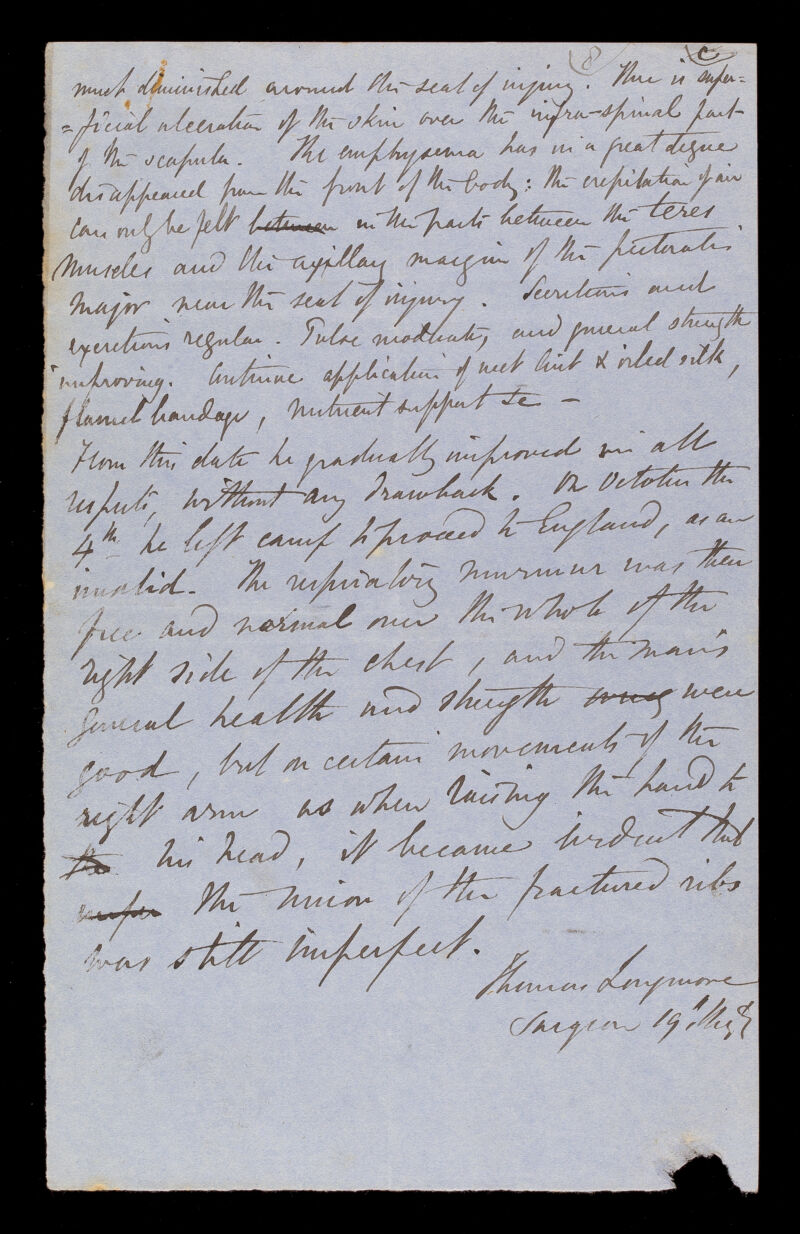 8 c
much diminished around the seat of injury. There is super=
=ficial ulceration of the skin over the infra-spinal part
of the scapula. The emphysema has in a great degree
disappeared from the front of the body: the crepitation of air
can only be felt between in the parts between the teres
muscles and the axillary margin of the pectoralis
major near the seat of injury. Secretions and
excretions regular. Pulse moderate, and general strength
improving. Continue application of wet lint & oiled silk,
flannel bandage, nutrient support &c —
From this date he gradually improved in all
respects, without any drawback. On October the
4th he left camp to proceed to England, as an
invalid. The respiratory murmur was then
free and normal over the whole of the
right side of the chest, and the man's
general health and strength were
good, but on certain movements of the
right arm as when raising the hand to
the his head, it became evident that
the union of the fractured ribs
was still imperfect.
Thomas Longmore
Surgeon 19th Regt